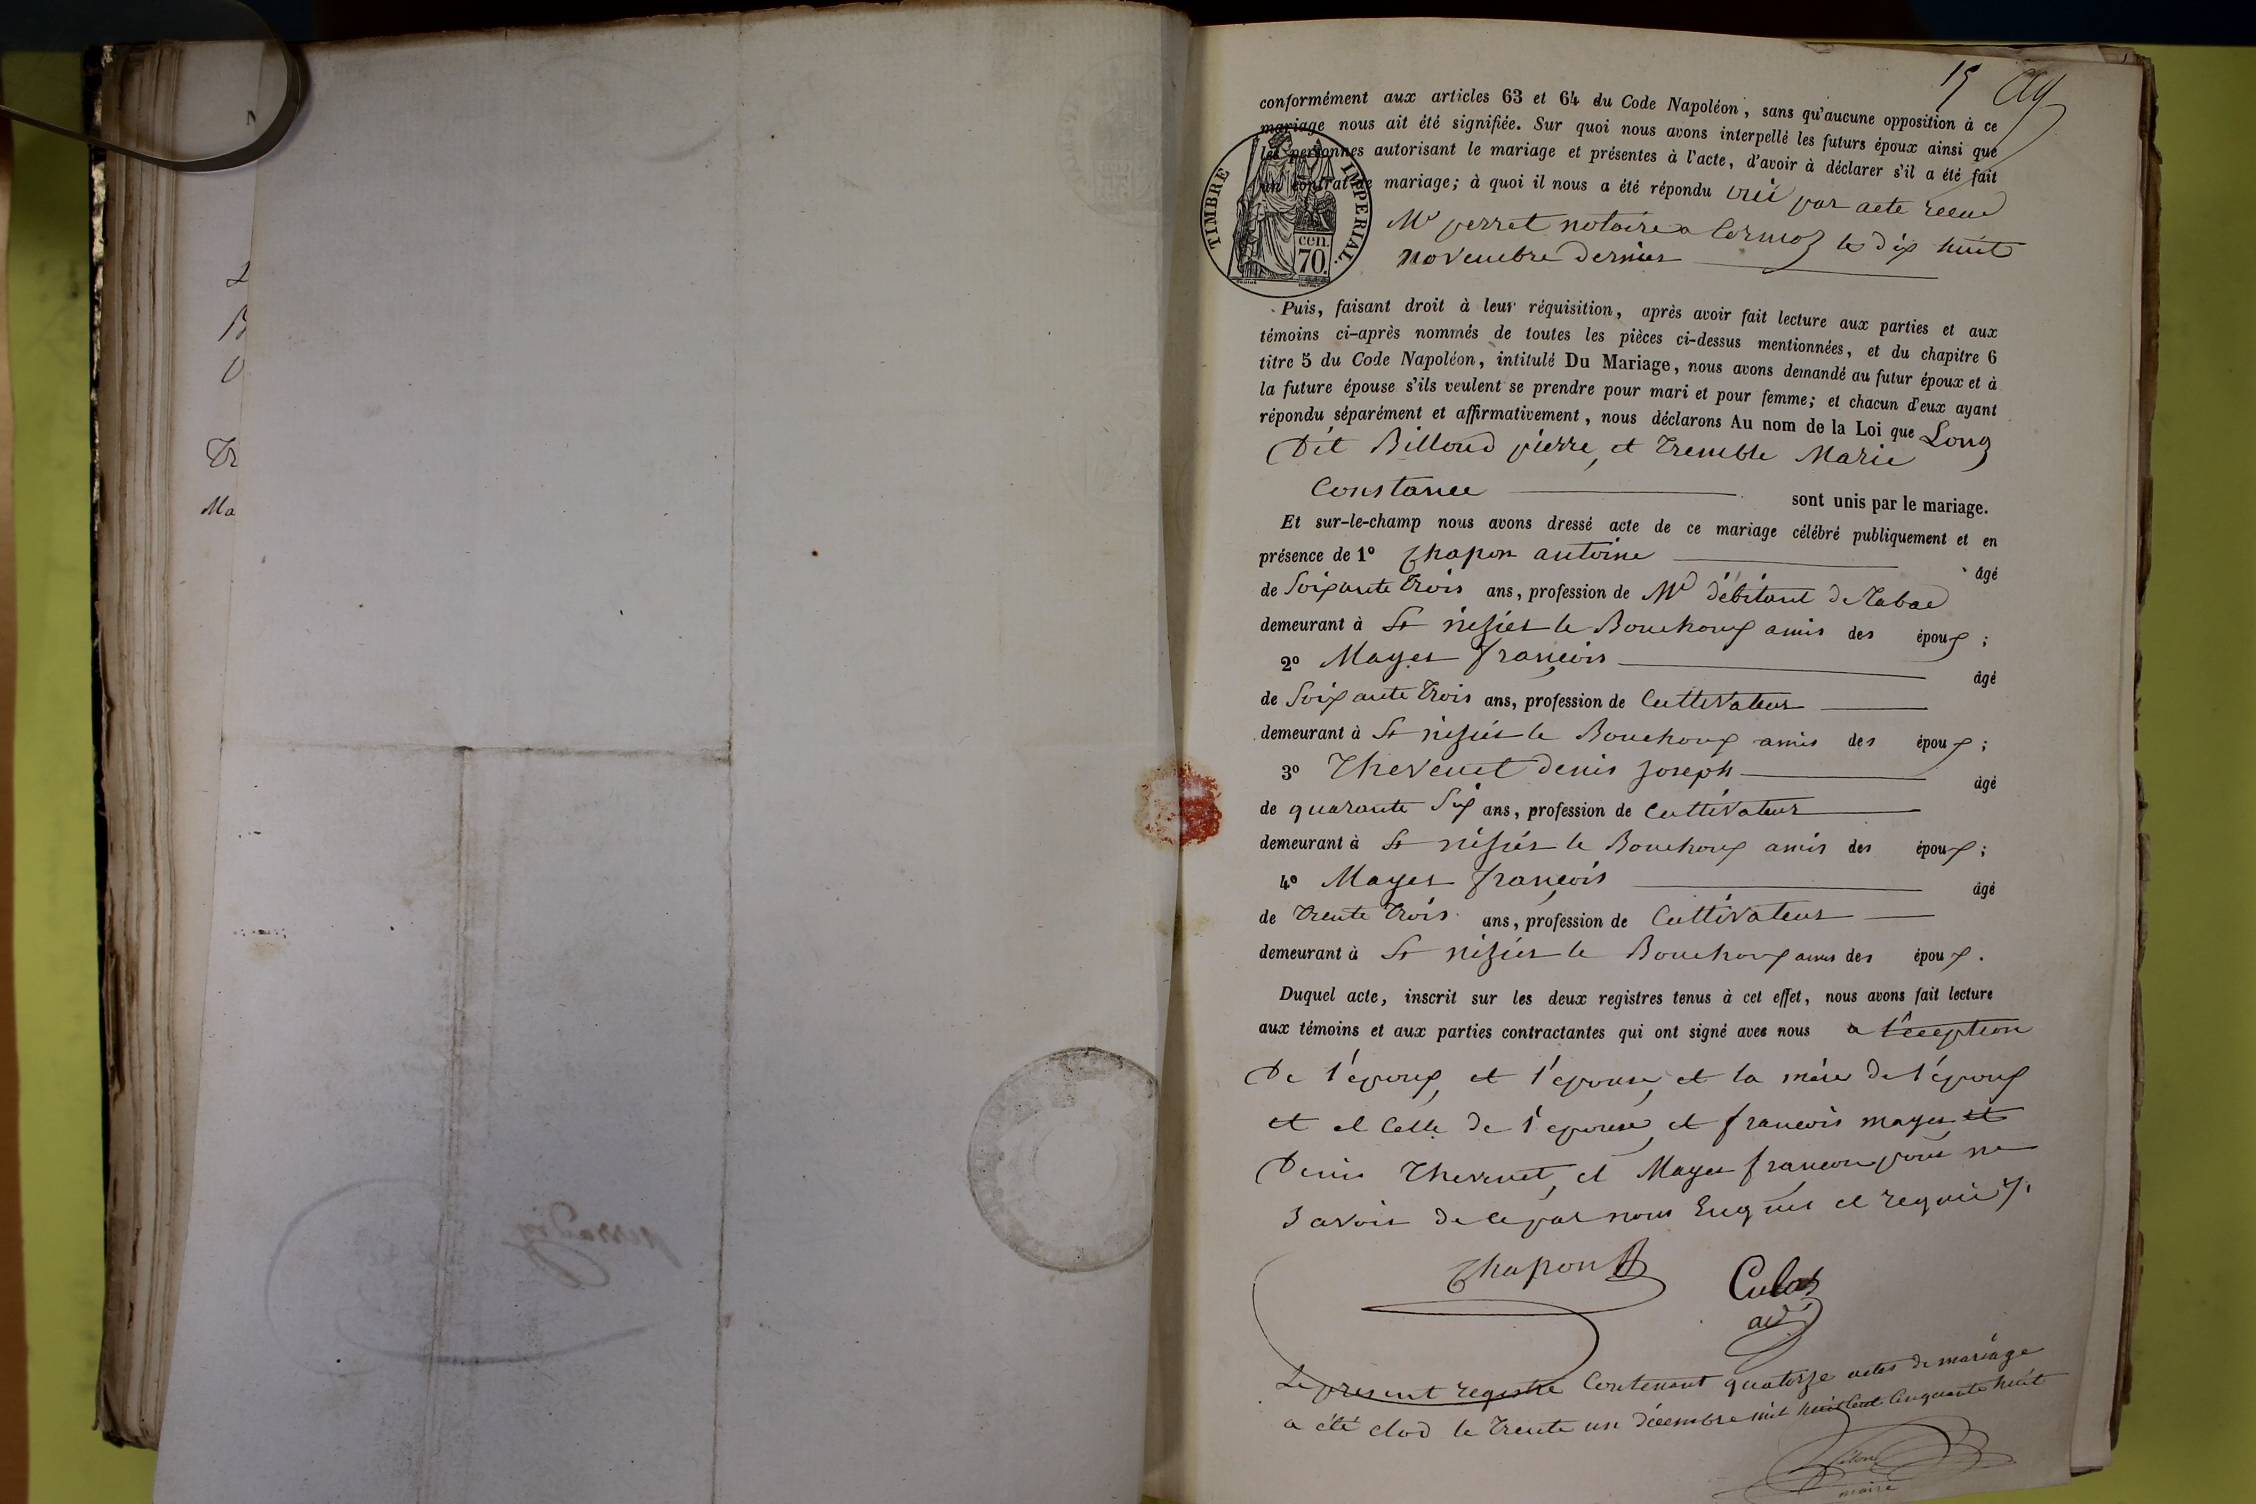 15
conformément aux articles 63 et 64 du Code Napoléon, sans qu'aucune opposition à ce
mariage nous ait été signifiée. Sur quoi nous avons interpellé les futurs époux ainsi que
les personnes autorisant le mariage et présentes à l'acte, d'avoir à déclarer s'il a été fait
un contrat de mariage; à quoi il nous a été répondu oui par acte recu
Me perret notaire a Cormoz le dix huit
novembre dernier
TIMBRE IMPERIAL.
cen.
70.
Puis, faisant droit à leur réquisition, après avoir fait lecture aux parties et aux
témoins ci-après nommés de toutes les pièces ci-dessus mentionnées, et du chapitre 6
titre 5 du Code Napoléon, intitulé Du Mariage, nous avons demandé au futur époux et à
la future épouse s'ils veulent se prendre pour mari et pour femme; et chacun d'eux ayant
répondu séparément et affirmativement, nous déclarons Au nom de la Loi que Long
Dit Billoud pierre, et Tremble Marie
Constance sont unis par le mariage.
Et sur-le-champ nous avons dressé acte de ce mariage célébré publiquement et en
présence de 1º Chapon antoine âgé
de Soixante Trois ans, profession de Md débitant de Tabac
demeurant à St nizier le Bouchoux amis des époux;
2º Mayer françois âgé
de Soixante Trois ans, profession de Cultivateur
demeurant à St nizier le Bouchoux amis des époux;
3º Thevenet denis joseph âgé
de quarante Six ans, profession de Cultivateur
demeurant à St nizier le Bouchoux amis des époux;
4º Mayer françois âgé
de Trente Trois ans, profession de Cultivateur
demeurant à St nizier le Bouchoux amis des époux.
Duquel acte, inscrit sur les deux registres tenus à cet effet, nous avons fait lecture
aux témoins et aux parties contractantes qui ont signé avec nous a l'éception
De l'époux, et l'épouse, et la mère de l'époux
et et Celle de l'épouse, et françois mayer et
Denis Thevenet, et Mayer françois pour ne
Savoir de ce par nous Enquis et requis
Chapon
Culas
adj
Le present registre Contenant quatorze actes de mariage
a été clod le Trente un décembre mil huit Cent Cinquante huit
maire